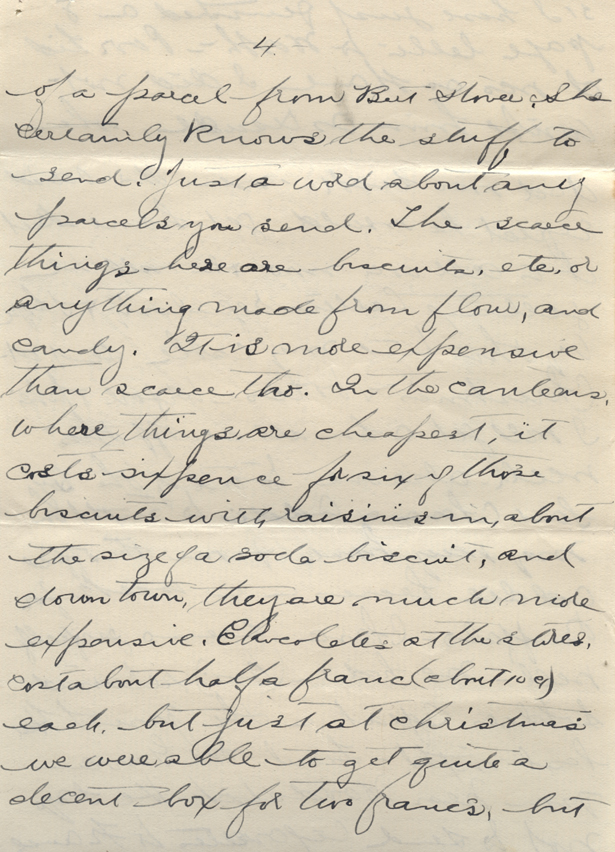 4.
of a parcel from Bert Stover. She
certainly knows the stuff to
send. Just a word about any
parcels you send. The scarce
things here are biscuits, etc. or
anything made from flour, and
candy. It is more expensive
than scarce tho. In the canteens,
where things are cheapest, it
costs sixpence for six of those
biscuits with raisins in, about
the size of a soda biscuit, and
down town, they are much more
expensive. Chocolates at the stores,
cost about half a franc (about 10¢)
each, but just at christmas
we were able to get quite a
decent box for two francs, but